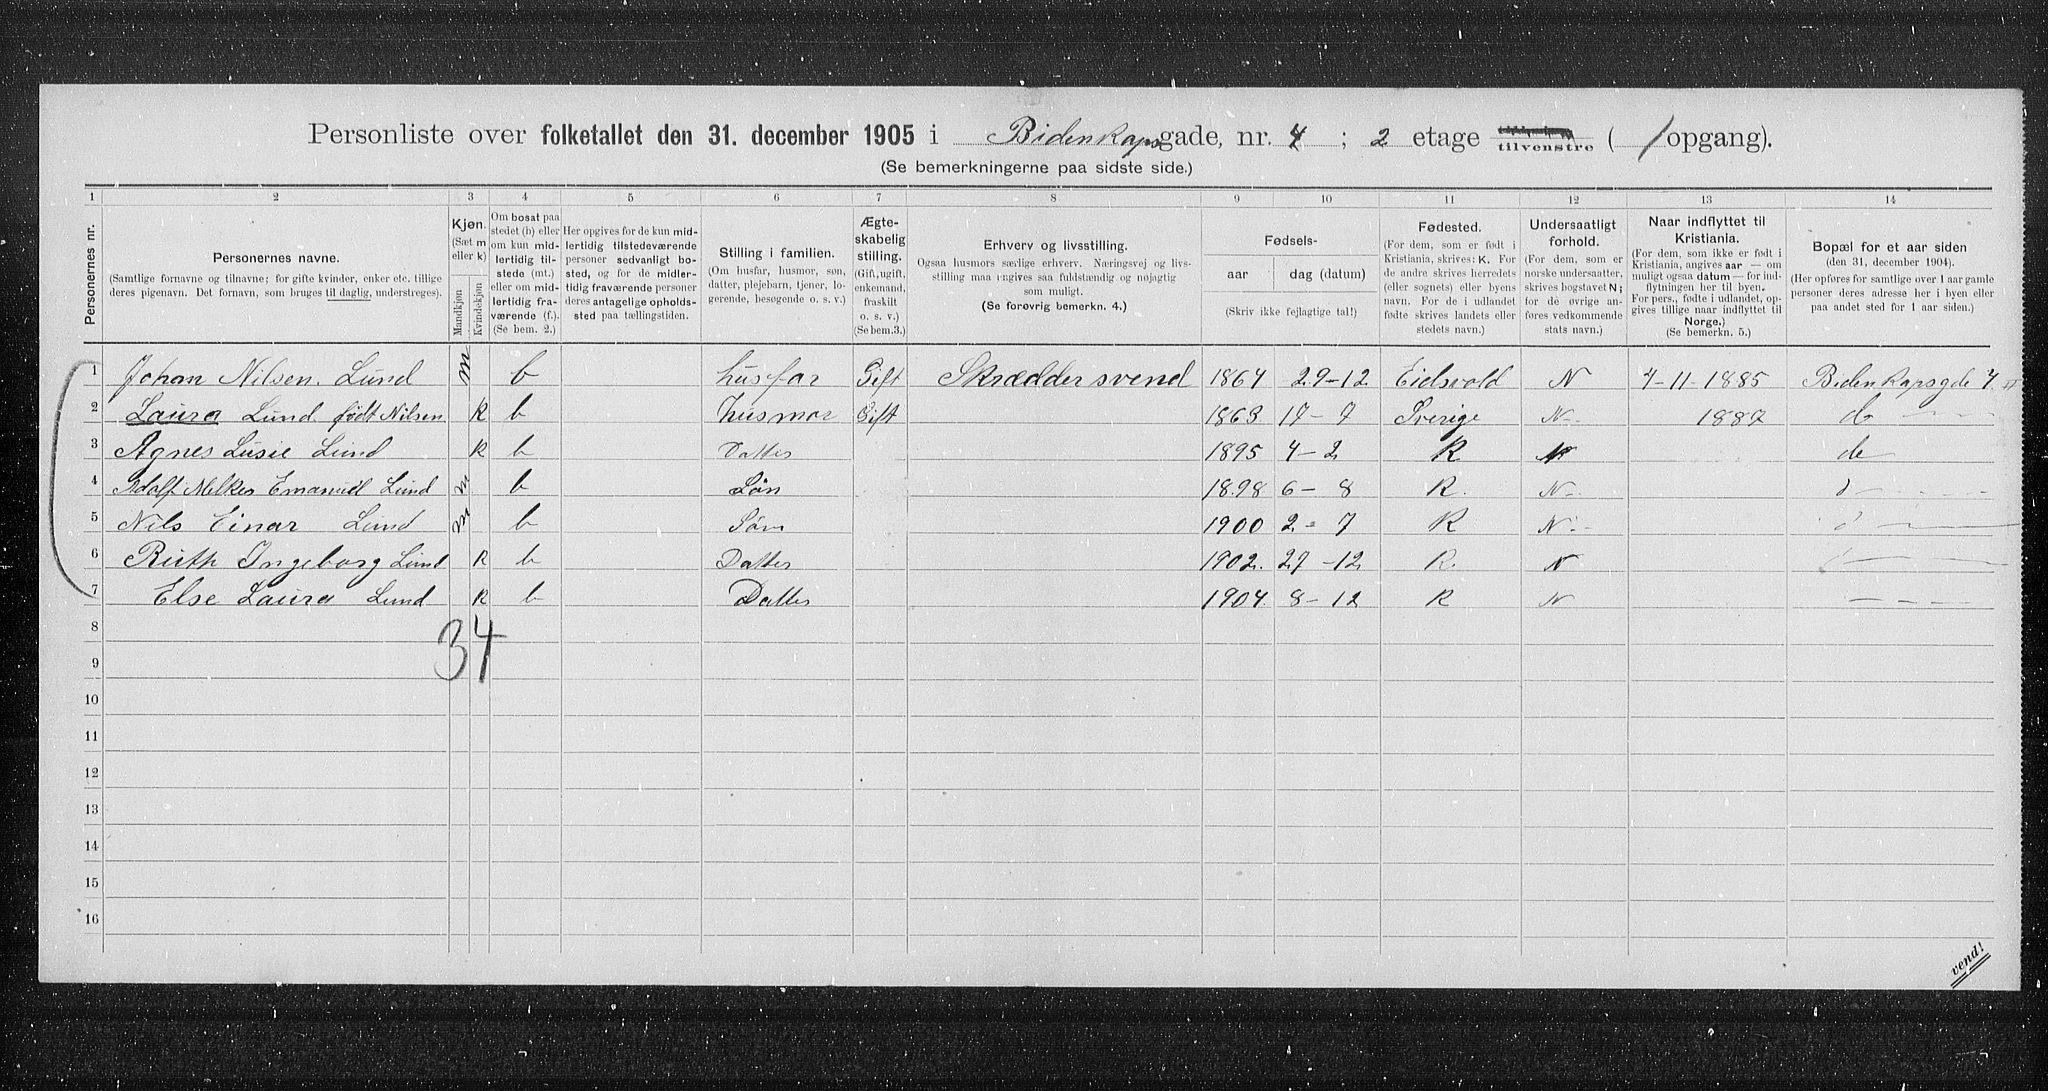 Personliste over folketallet den 31. december 1905 i Bidenkaps gade, nr. 4 ; 2 etage tilvenstre ( / opgang).
(Se bemerkningerne paa sidste side.)
1 2 3 4 5 6 7 8 9 10 11 12 13 14
Personernes nr.
Personernes navne.
(Samtlige fornavne og tilnavne; for gifte kvinder, enker etc. tillige
deres pigenavn. Det fornavn, som bruges til daglig, understreges).
Kjøn.
(Sæt m
eller k)
Mandkjøn
Kvindekjøn
Om bosat paa
stedet (b) eller
om kun mid-
lertidig til-
stede (mt.)
eller om mid-
lertidig fra-
værende (f.).
(Se bem. 2.)
Her opgives for de kun mid-
lertidig tilstedeværende
personer sedvanlig bo-
sted, og for de midler-
tidig fraværende personer
deres antagelige ophols-
sted paa tællingstiden.
Stilling i familien.
(Om husfar, husmor, søn,
datter, plejebarn, tjener, lo-
gerende, besøgende o. s. v.)
Ægte-
skabelig
stilling.
(Gift, ugift,
enkemand,
fraskilt
o. s. v.)
(Se bem.3.)
Erhverv og livsstilling.
Ogsaa husmors særlige erhverv. Næringsvej og livs-
stilling maa angives saa fuldstændig og nøjagtig
som muligt.
(Se forøvrig bemerkn. 4.)
Fødsels-
aar dag (datum)
(Skriv ikke fejlagtige tal!)
Fødested.
(For dem, som er født i
Kristiania, skrives: K. For
de andre skrives herredets
(eller sognets) eller byens
navn. For de i udlandet
fødte skrives landets eller
stedets navn.)
Undersaatligt
forhold.
(For dem, som er
norske undersaatter,
skrives bogstavet N;
for de øvrige an-
føres vedkommende
stats navn.)
Naar indflyttet til
Kristiania.
(For dem, som ikke er født i
Kristiania, angives aar — om
muligt ogsaa datum — for ind-
flytningen her til byen.
For pers., fødte i udlandet, op-
gives tillige naar indflyttet til
Norge.)
(Se bemerkn. 5.)
Bopæl for et aar siden
(den 31. december 1904).
(Her opføres for samtlige over 1 aar gamle
personer deres adresse her i byen eller
paa andet sted for 1 aar siden.)
1 Johan Nilsen. Lund m b husfar Gift Skræddersvend 1864 29-12. Eidsvold N 4-11-1885 Bidenkapsgde 4
2 Laura Lund født Nilsen k b husmor Gift 1863 17-7 Sverige N 1887 do
3 Agnes Lusie Lund k b Datter 1895 4-2 K N do
4 Adolf Melker Emanuel Lund m b Søn 1898 6-8 K. N
5 Nils Einar Lund m b Søn 1900 2-7 K N
6 Ruth Ingeborg Lund k b Datter 1902. 27-12 K. N
7 Else Laura Lund k b Datter 1904. 8-12 K N
8
34
9
10
11
12
13
14
15
16
vend!